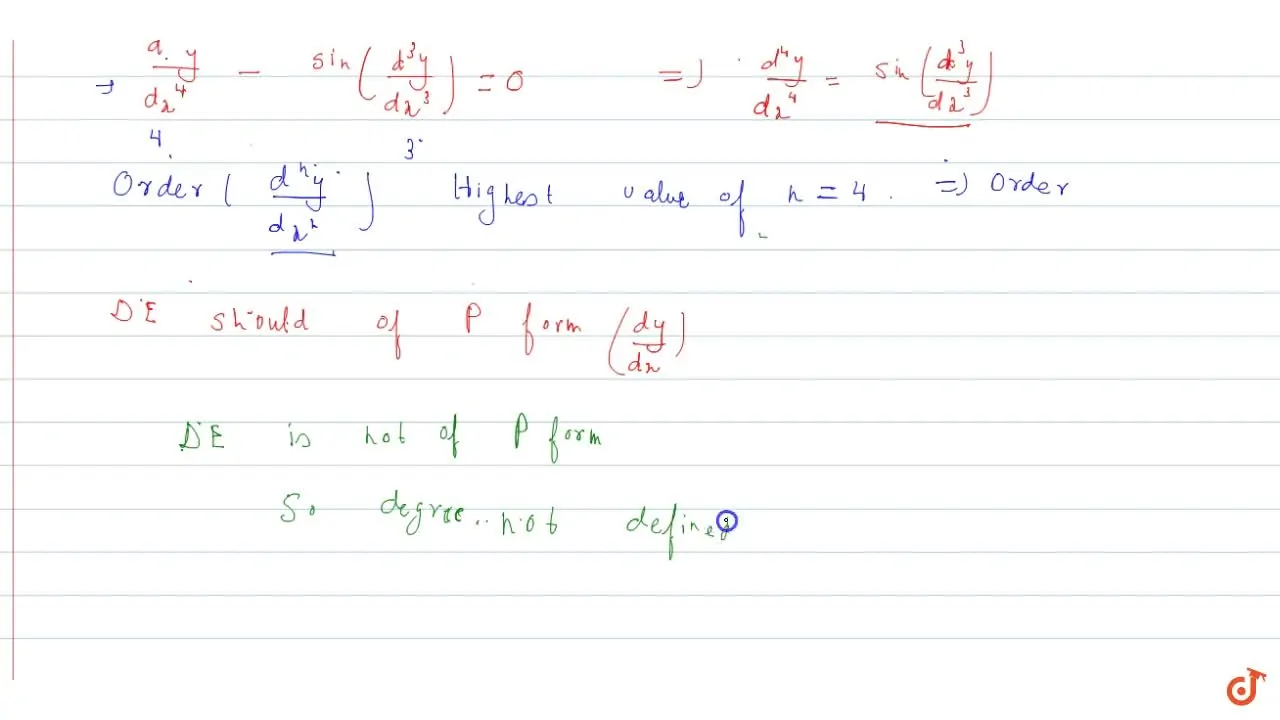 → d⁴y/dx⁴ - sin(d³y/dx³) = 0 ⇒ d⁴y/dx⁴ = sin(d³y/dx³)
4 3
Order (dⁿy/dxⁿ) Highest value of n = 4 . ⇒ Order
DE should of P form (dy/dx)
DE is not of P form
So degree.. not defined